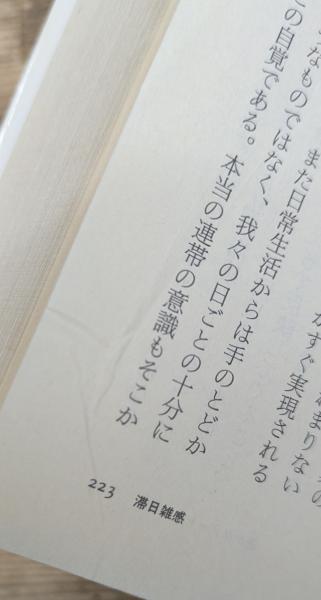 の
まりない
すぐ実現される
また日常生活からは手のとどか
なものではなく、我々の日ごとの十分に
の自覚である。本当の連帯の意識もそこか
223 滞日雑感